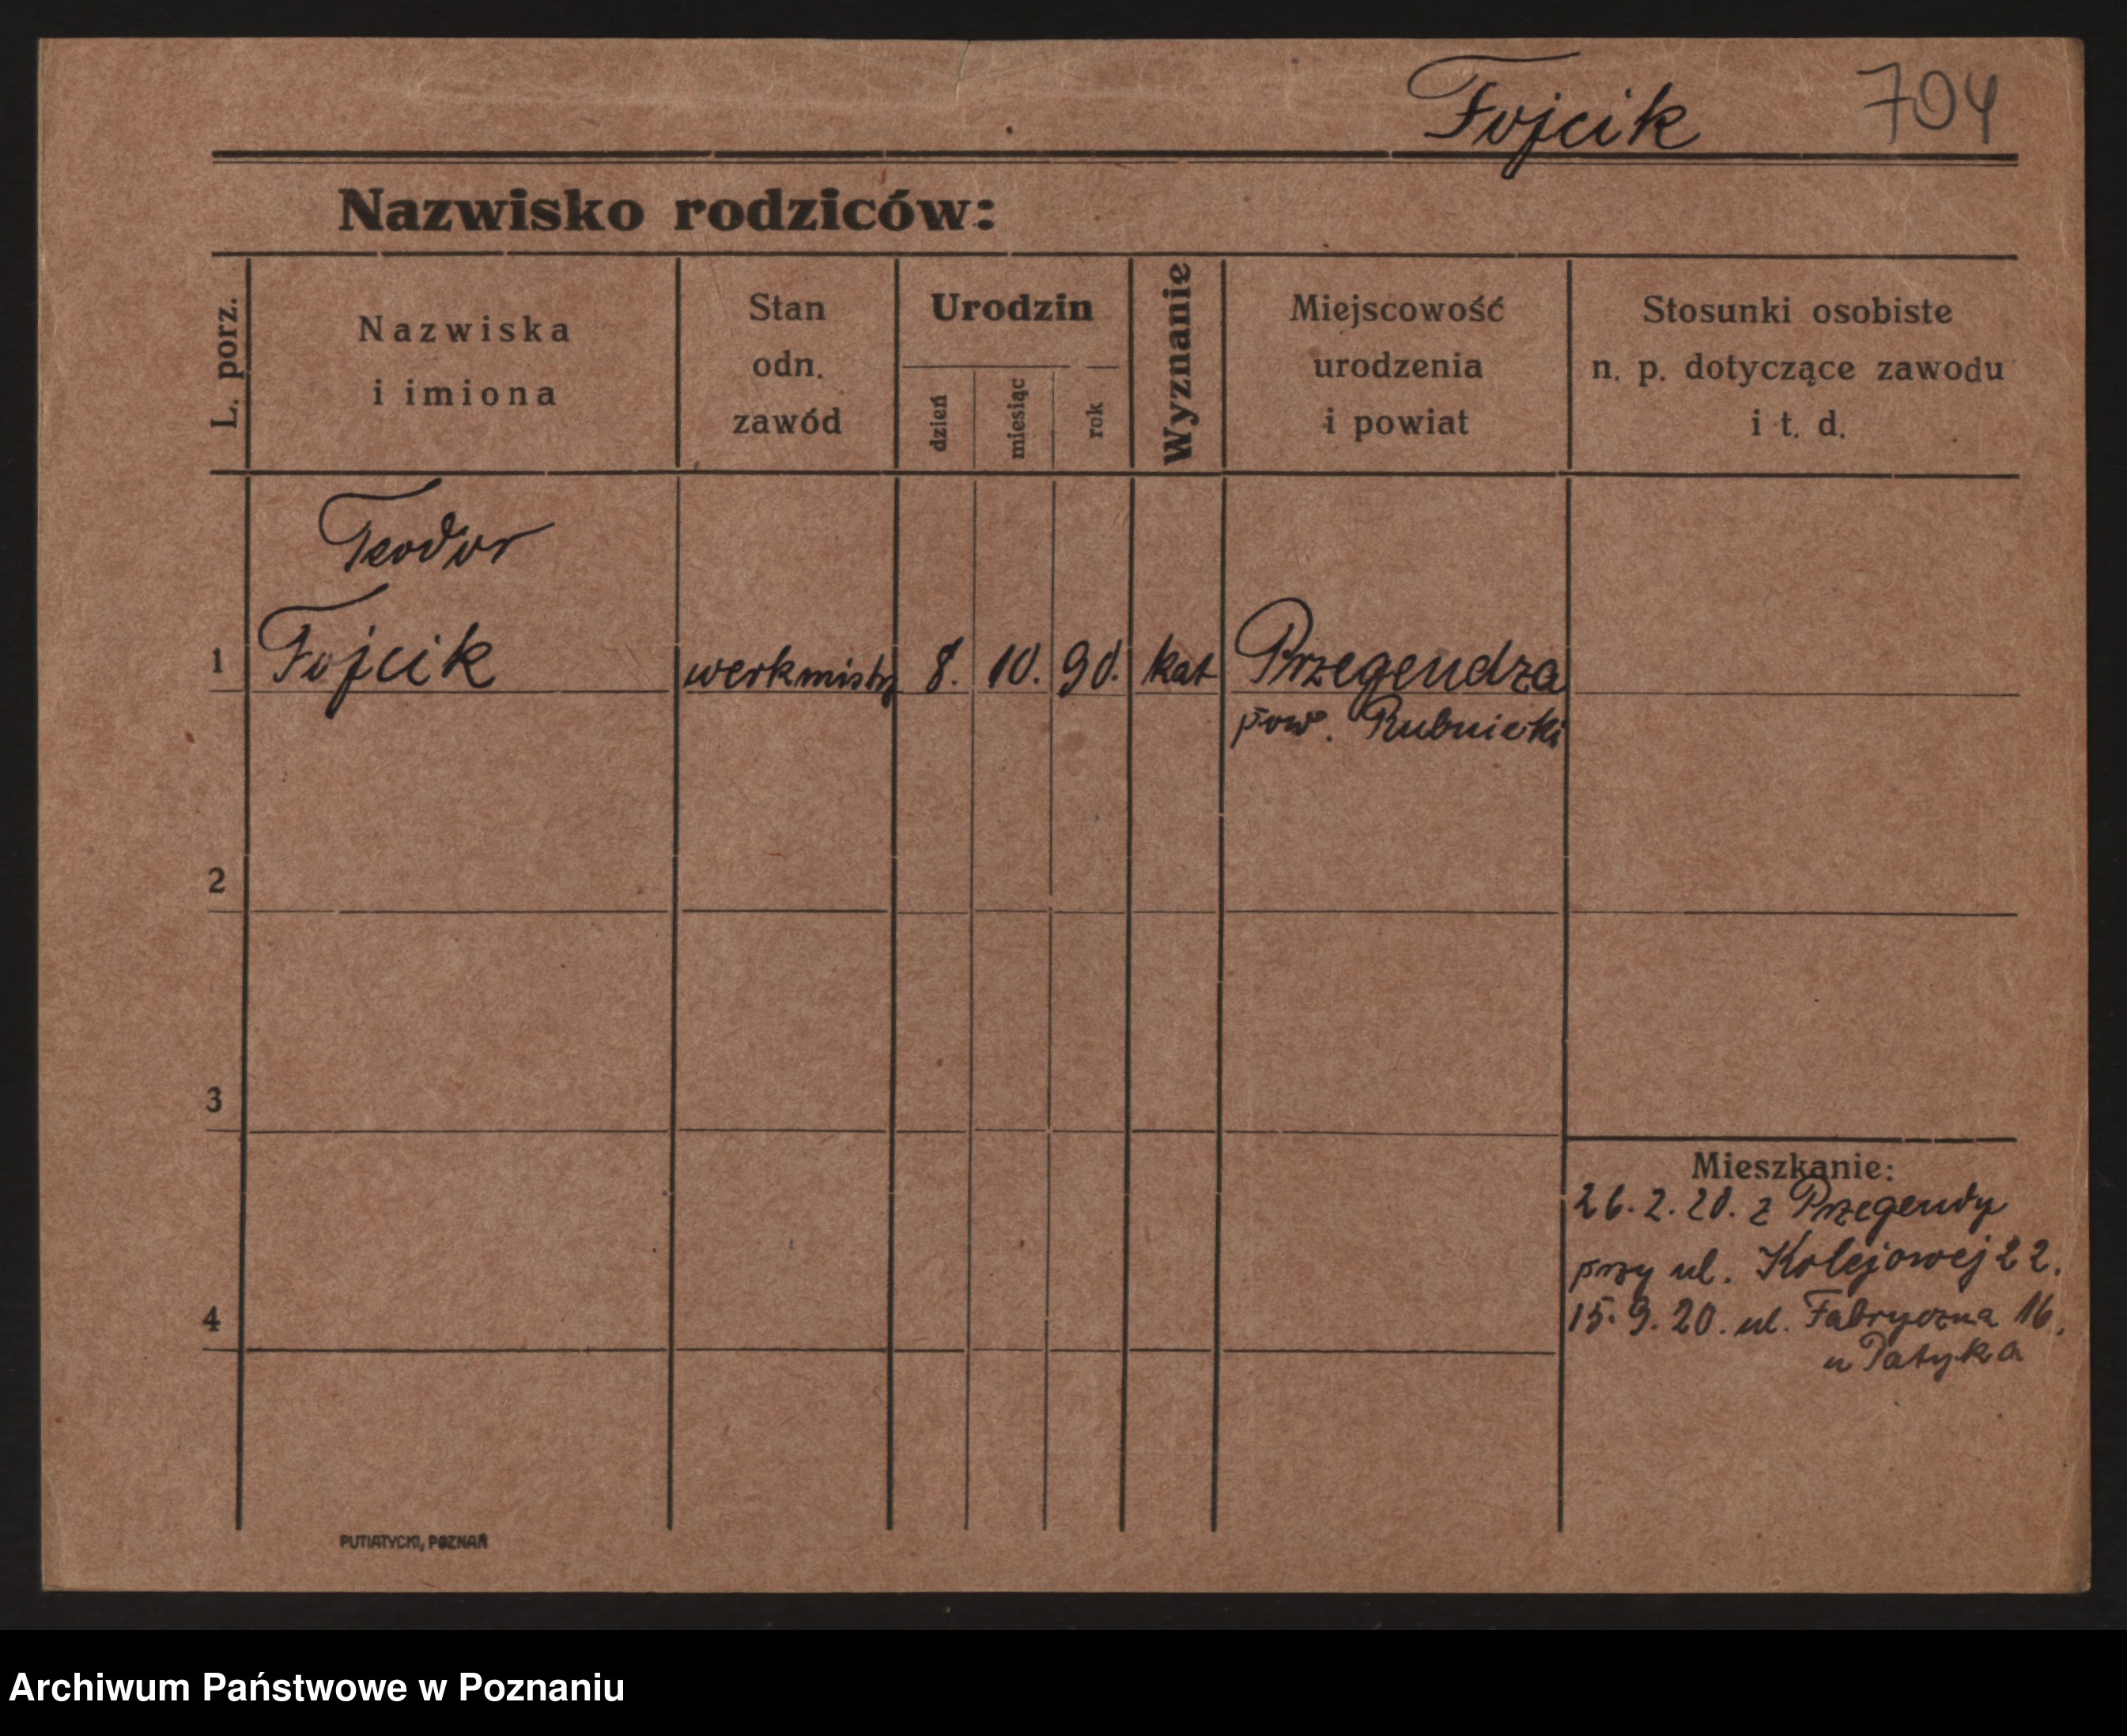 Fojcik 704
Nazwisko rodziców:
L. porz.
Nazwiska
i imiona
Stan
odn.
zawód
Urodzin
dzień
miesiąc
rok
Wyznanie
Miejscowość
urodzenia
i powiat
Stosunki osobiste
n. p. dotyczące zawodu
i t. d.
Teodor
1 Fojcik werkmistrz 8. 10. 90. kat Przegendza
pow. Rubnicki
2
3
Mieszkanie:
26. 2. 20. z Przegendy
przy ul. Kolejowej 22.
4 15. 9. 20. ul. Fabryczna 16.
u Patyka
PUTIATYCKI, POZNAŃ
Archiwum Państwowe w Poznaniu